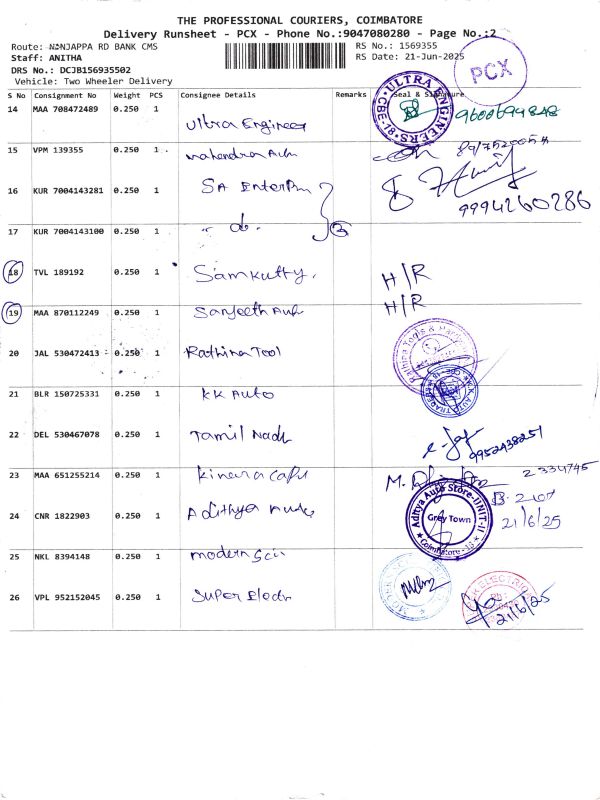 THE PROFESSIONAL COURIERS, COIMBATORE
Delivery Runsheet - PCX - Phone No.:9047080280 - Page No.:2
Route: NANJAPPA RD BANK CMS
RS No.: 1569355
Staff: ANITHA
RS Date: 21-Jun-2025
DRS No.: DCJB156935502
Vehicle: Two Wheeler Delivery
PCX
S No Consignment No Weight PCS Consignee Details Remarks Seal & Signature
14 MAA 708472489 0.250 1 Ultra Engineer
ULTRA ENGINEERS CBE-18
9600699848
15 VPM 139355 0.250 1 mahendra Auto
16 KUR 7004143281 0.250 1 SA Enterprise
9994260286
17 KUR 7004143100 0.250 1 - do - 2
18 TVL 189192 0.250 1 Samkutty. H/R
19 MAA 870112249 0.250 1 Sanjeeth Aut H/R
20 JAL 530472413 0.250 1 Rathina Tool
21 BLR 150725331 0.250 1 KK Auto
22 DEL 530467078 0.250 1 Tamil Nadu
9952438251
23 MAA 651255214 0.250 1 Kinara Capi
2334745
24 CNR 1822903 0.250 1 Adithya Auto
Aditya Auto Store-UNIT-II
Grey Town
Coimbatore - 18
21/6/25
25 NKL 8394148 0.250 1 modern Sci
26 VPL 952152045 0.250 1 Super Electr
21/6/25